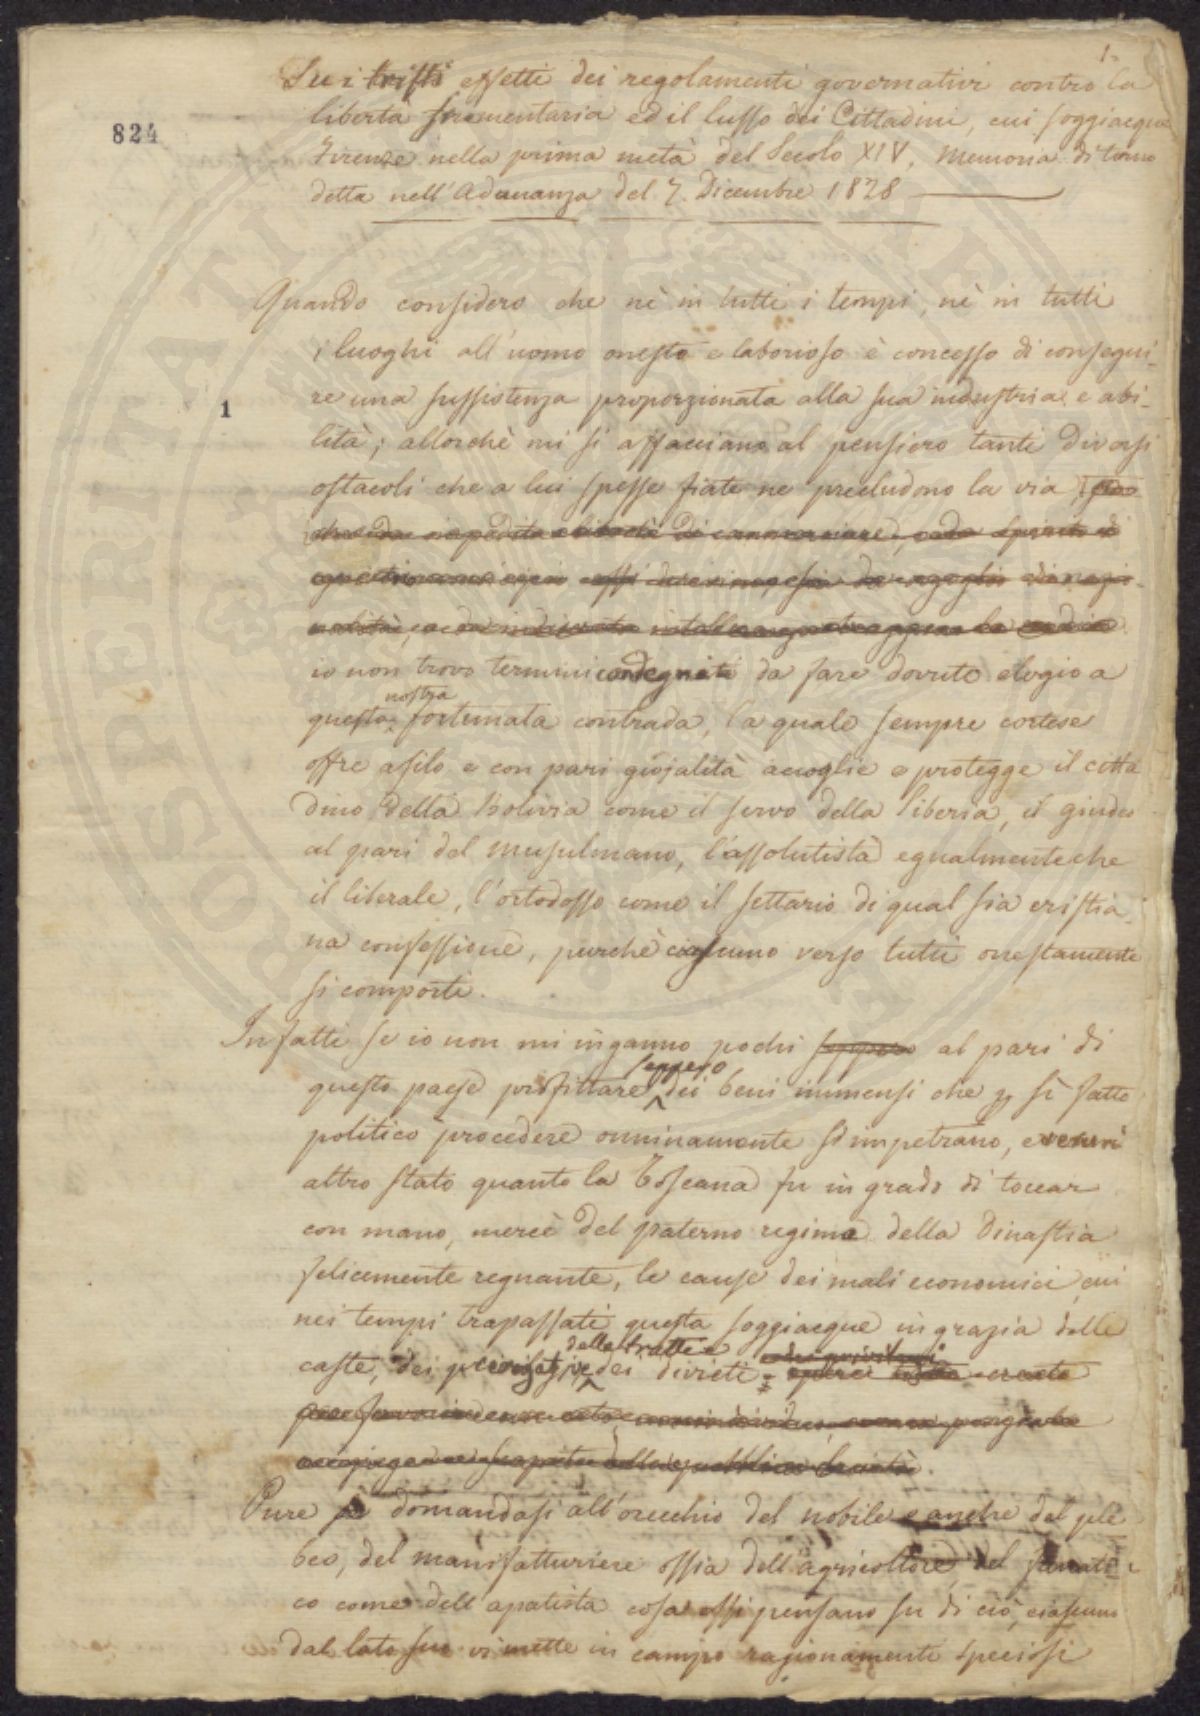 1.
Su i tristi effetti dei regolamenti governativi contro la
824
libertà frumentaria ed il lusso dei Cittadini, cui soggiacque
Firenze nella prima metà del Secolo XIV. Memoria di turno
detta nell'Adunanza del 7. Dicembre 1828
Quando considero che nè in tutti i tempi, nè in tutti
i luoghi all'uomo onesto e laborioso è concesso di consegui-
re una sussistenza proporzionata alla sua industria e abi-
1
lità; allorchè mi si affacciano al pensiero tanti diversi
ostacoli che a lui spesse fiate ne precludono la via
io non trovo termini condegni da fare dovuto elogio a
nostra
questa fortunata contrada, la quale sempre cortese
offre asilo e con pari giojalità accoglie e protegge il citta
dino della Bolivia come il servo della Siberia, il giudeo
al pari del musulmano, l'assolutista egualmente che
il liberale, l'ortodosso come il settario di qual sia cristia
na confessione, purchè ciascuno verso tutti onestamente
si comporti.
Infatti se io non mi inganno pochi seppero al pari di
seppero
questo paese profittare dei beni immensi che p sì fatto
politico procedere onninamente s'impetrano, e veruri
altro stato quanto la Toscana fu in grado di toccar
con mano, mercè del paterno regime della Dinastia
felicemente regnante, le cause dei mali economici cui
nei tempi trapassati questa soggiacque in grazia delle
delle tratte e dei privilegi
caste, dei dei divieti opere tutte create
Pure se domandasi all'orecchio del nobile e anche del ple
beo, del manifatturiere ossia dell'agricoltore, del fanati
co come dell'apatista cosa essi pensano su di ciò, ciascuno
dal lato suo vi mette in campo ragionamenti speciosi